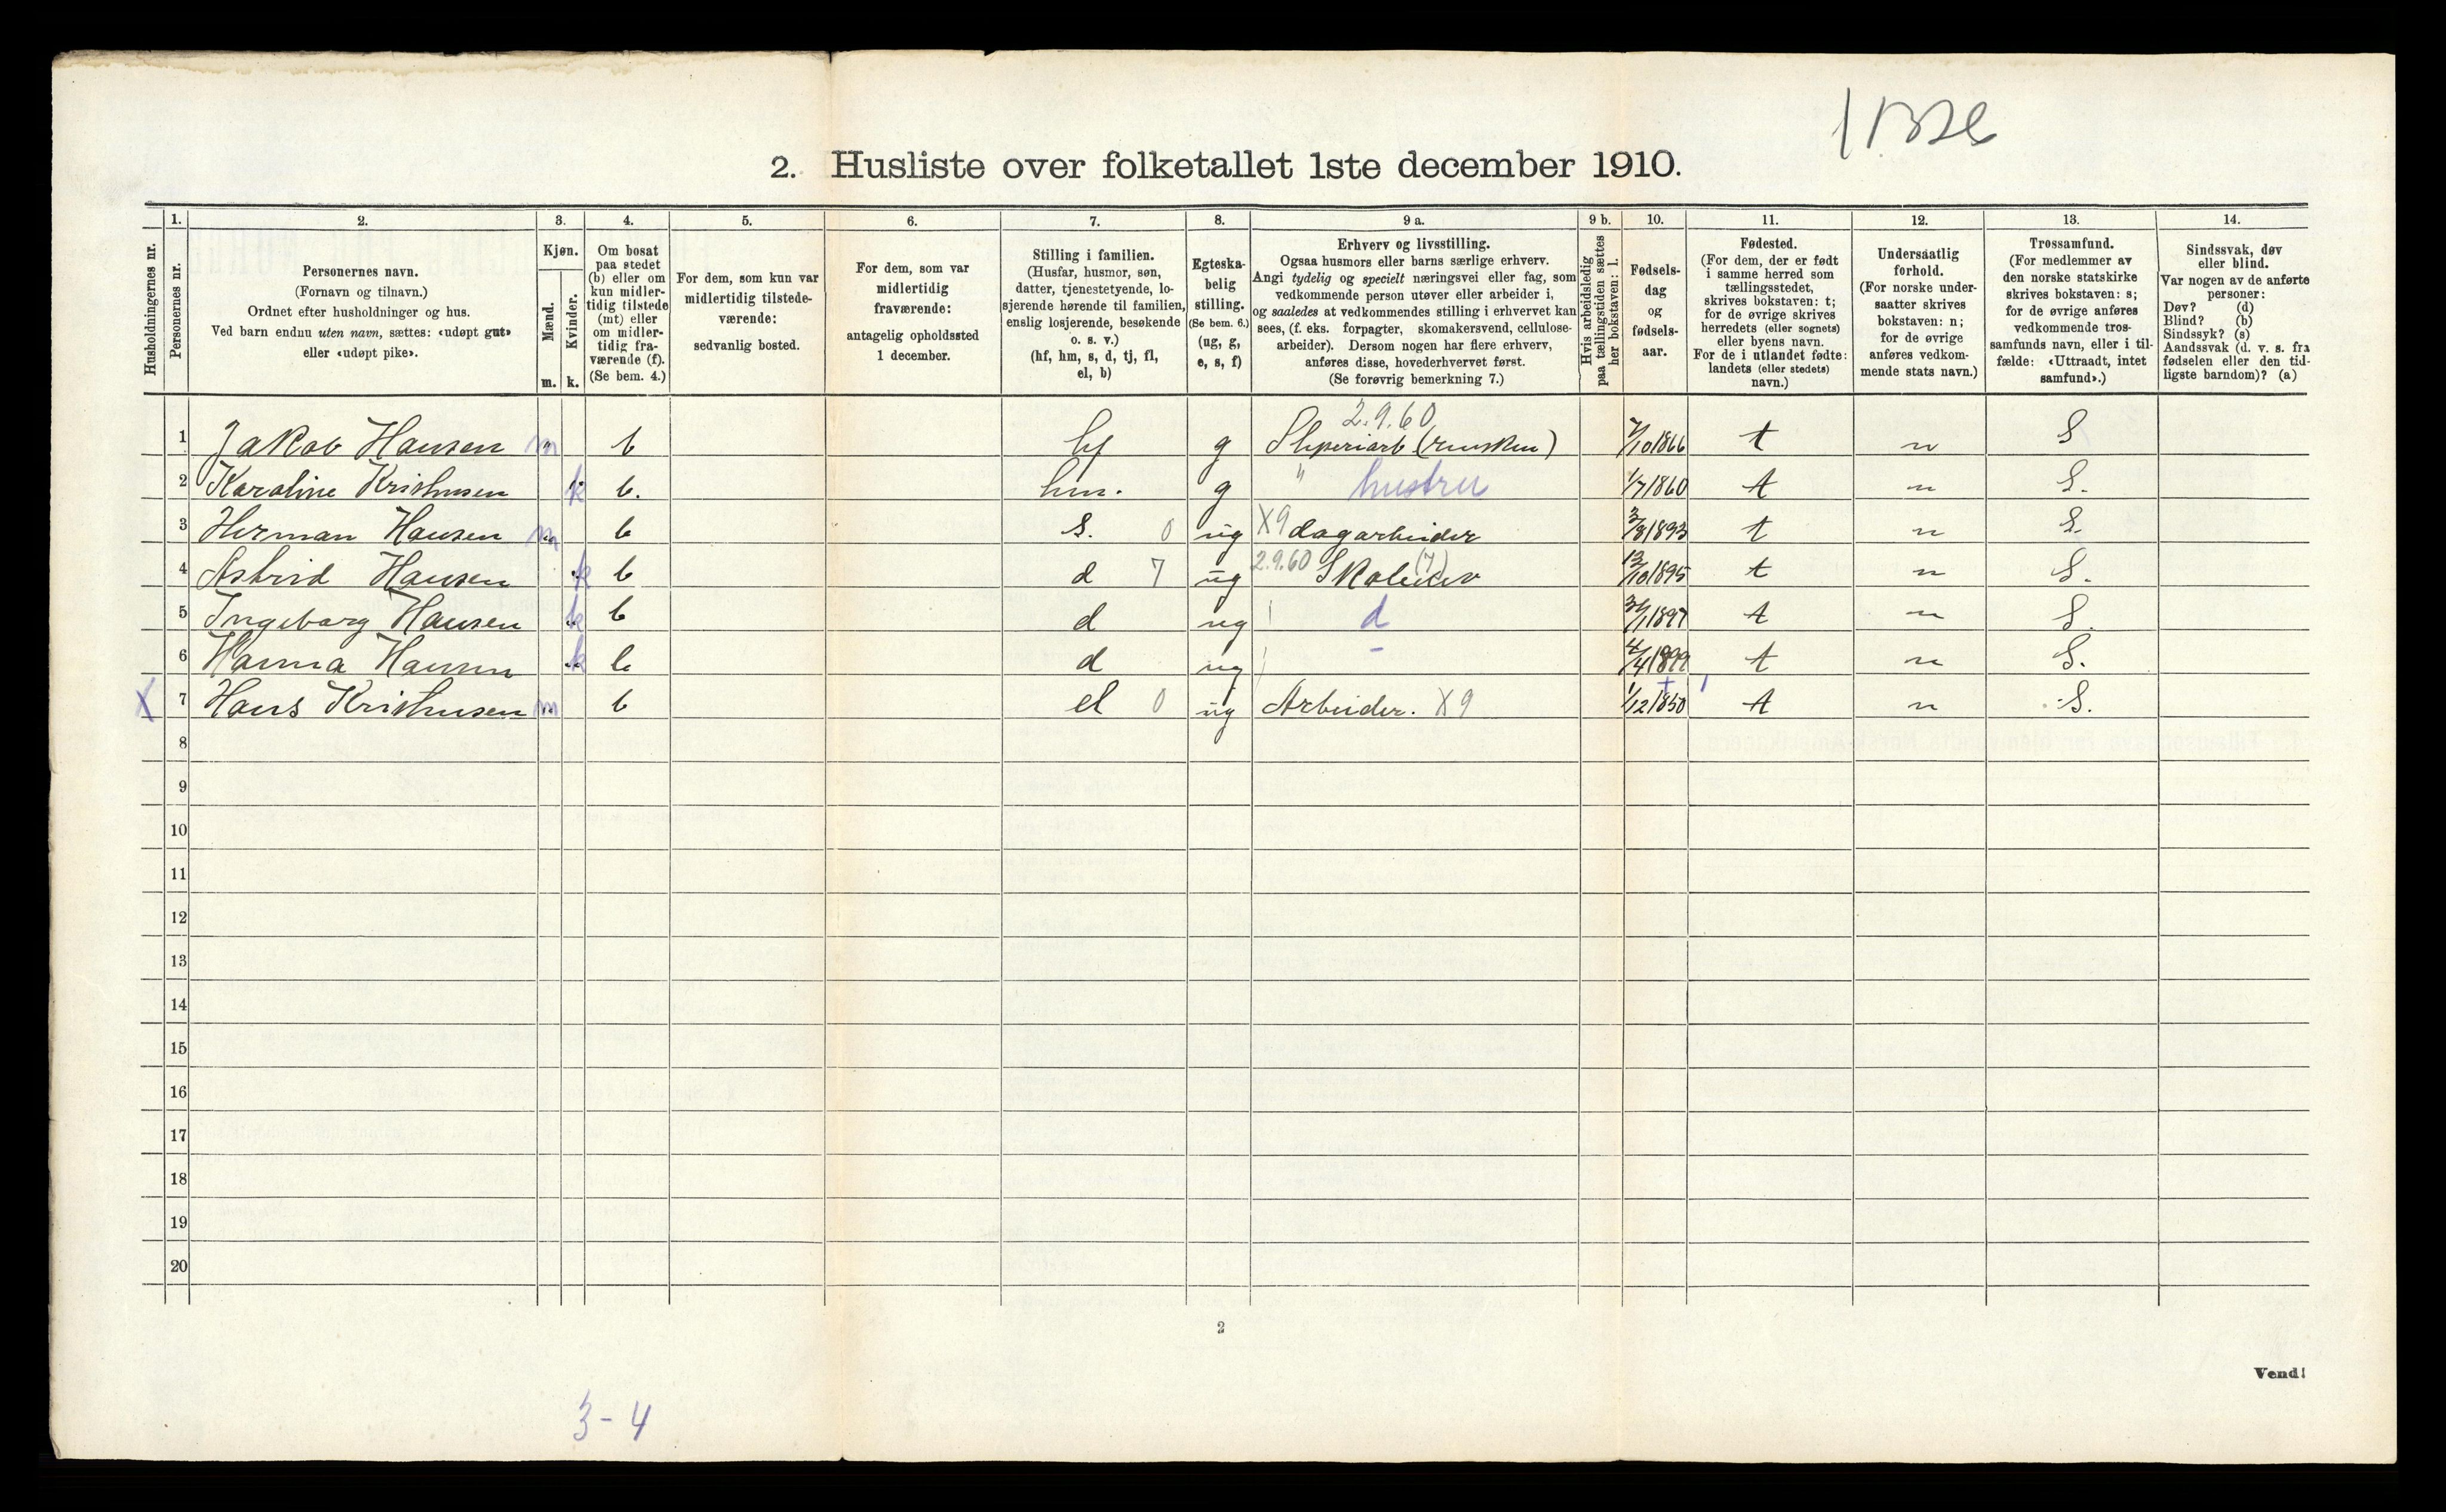 2. Husliste over folketallet 1ste december 1910.
Husholdningernes nr.
1. Personernes nr.
2. Personernes navn.
(Fornavn og tilnavn.)
Ordnet efter husholdninger og hus.
Ved barn endnu uten navn, sættes: «udøpt gut»
eller «udøpt pike».
3. Kjøn.
Mænd. m.
Kvinder. k.
4. Om bosat
paa stedet
(b) eller om
kun midler-
tidig tilstede
(mt) eller
om midler-
tidig fra-
værende (f).
(Se bem. 4.)
5. For dem, som kun var
midlertidig tilstede-
værende:
sedvanlig bosted.
6. For dem, som var
midlertidig
fraværende:
antagelig opholdssted
1 december.
7. Stilling i familien.
(Husfar, husmor, søn,
datter, tjenestetyende, lo-
sjerende hørende til familien,
enslig losjerende, besøkende
o. s. v.)
(hf, hm, s, d, tj, fl,
el, b)
8. Egteska-
belig
stilling.
(Se bem. 6.)
(ug, g,
e, s, f)
9 a. Erhverv og livsstilling.
Ogsaa husmors eller barns særlige erhverv.
Angi tydelig og specielt næringsvei eller fag, som
vedkommende person utøver eller arbeider i,
og saaledes at vedkommendes stilling i erhvervet kan
sees, (f. eks. forpagter, skomakersvend, cellulose-
arbeider). Dersom nogen har flere erhverv,
anføres disse, hovederhvervet først.
(Se forøvrig bemerkning 7.)
9 b. Hvis arbeidsledig
paa tællingstiden sættes
her bokstaven: l.
10. Fødsels-
dag
og
fødsels-
aar.
11. Fødested.
(For dem, der er født
i samme herred som
tællingsstedet,
skrives bokstaven: t;
for de øvrige skrives
herredets (eller sognets)
eller byens navn.
For de i utlandet fødte:
landets (eller stedets)
navn.)
12. Undersaatlig
forhold.
(For norske under-
saatter skrives
bokstaven: n;
for de øvrige
anføres vedkom-
mende stats navn.)
13. Trossamfund.
(For medlemmer av
den norske statskirke
skrives bokstaven: s;
for de øvrige anføres
vedkommende tros-
samfunds navn, eller i til-
fælde: «Uttraadt, intet
samfund».)
14. Sindssvak, døv
eller blind.
Var nogen av de anførte
personer:
Døv? (d)
Blind? (b)
Sindssyk? (s)
Aandssvak (d. v. s. fra
fødselen eller den tid-
ligste barndom)? (a)
2.9.60
1 Jakob Hansen m b hf g 7/10 1866 t n S
2 Karoline Kristiansen k b. hm. g " hustru 1/7 1860 t n S.
3 Herman Hansen m b s. 0 ug X9 dagarbeider 3/8 1893 t n S.
4 Astrid Hansen k b d 7 ug 2.9.60 Skoleelev (7) 13/10 1895 t n S.
5 Ingeborg Hansen k b d ug d 1897 t n S.
6 Hanna Hansen k b d ug - 4/4 1899 t n S.
X 7 Hans Kristiansen m b el 0 ug Arbeider. X9 1/12 1850 t n S.
8
9
10
11
12
13
14
15
16
17
18
19
20
2
Vend!
3-4